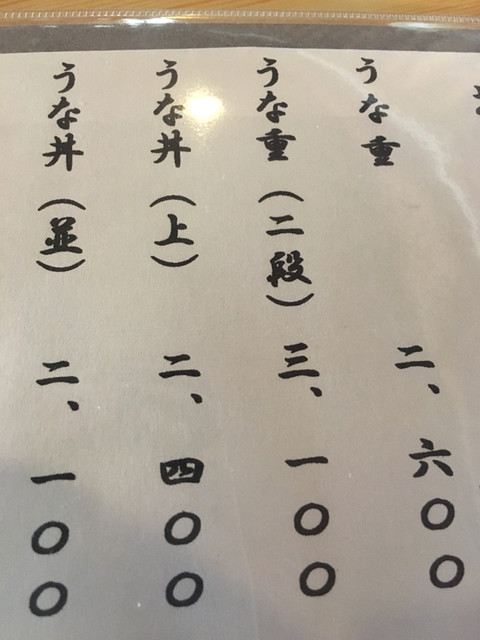 うな重 二、六〇〇
うな重（二段） 三、一〇〇
うな丼（上） 二、四〇〇
うな丼（並） 二、一〇〇